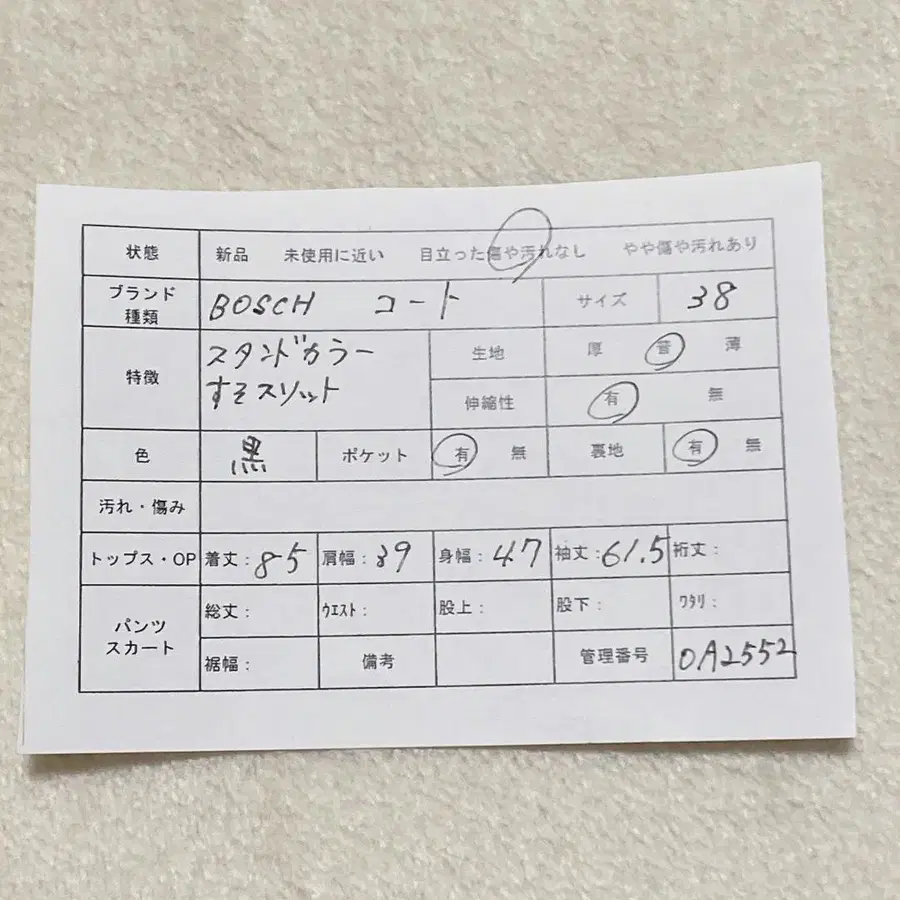 状態 新品 未使用に近い 目立った傷や汚れなし やや傷や汚れあり
ブランド 種類 BOSCH コート サイズ 38
特徴 スタンドカラー すそスリット
生地 厚 普 薄
伸縮性 有 無
色 黒 ポケット 有 無 裏地 有 無
汚れ・傷み
トップス・OP 着丈:85 肩幅:39 身幅:47 袖丈:61.5 裄丈:
パンツ スカート 総丈: ウエスト: 股上: 股下: ワタリ:
裾幅: 備考 管理番号 OA2552